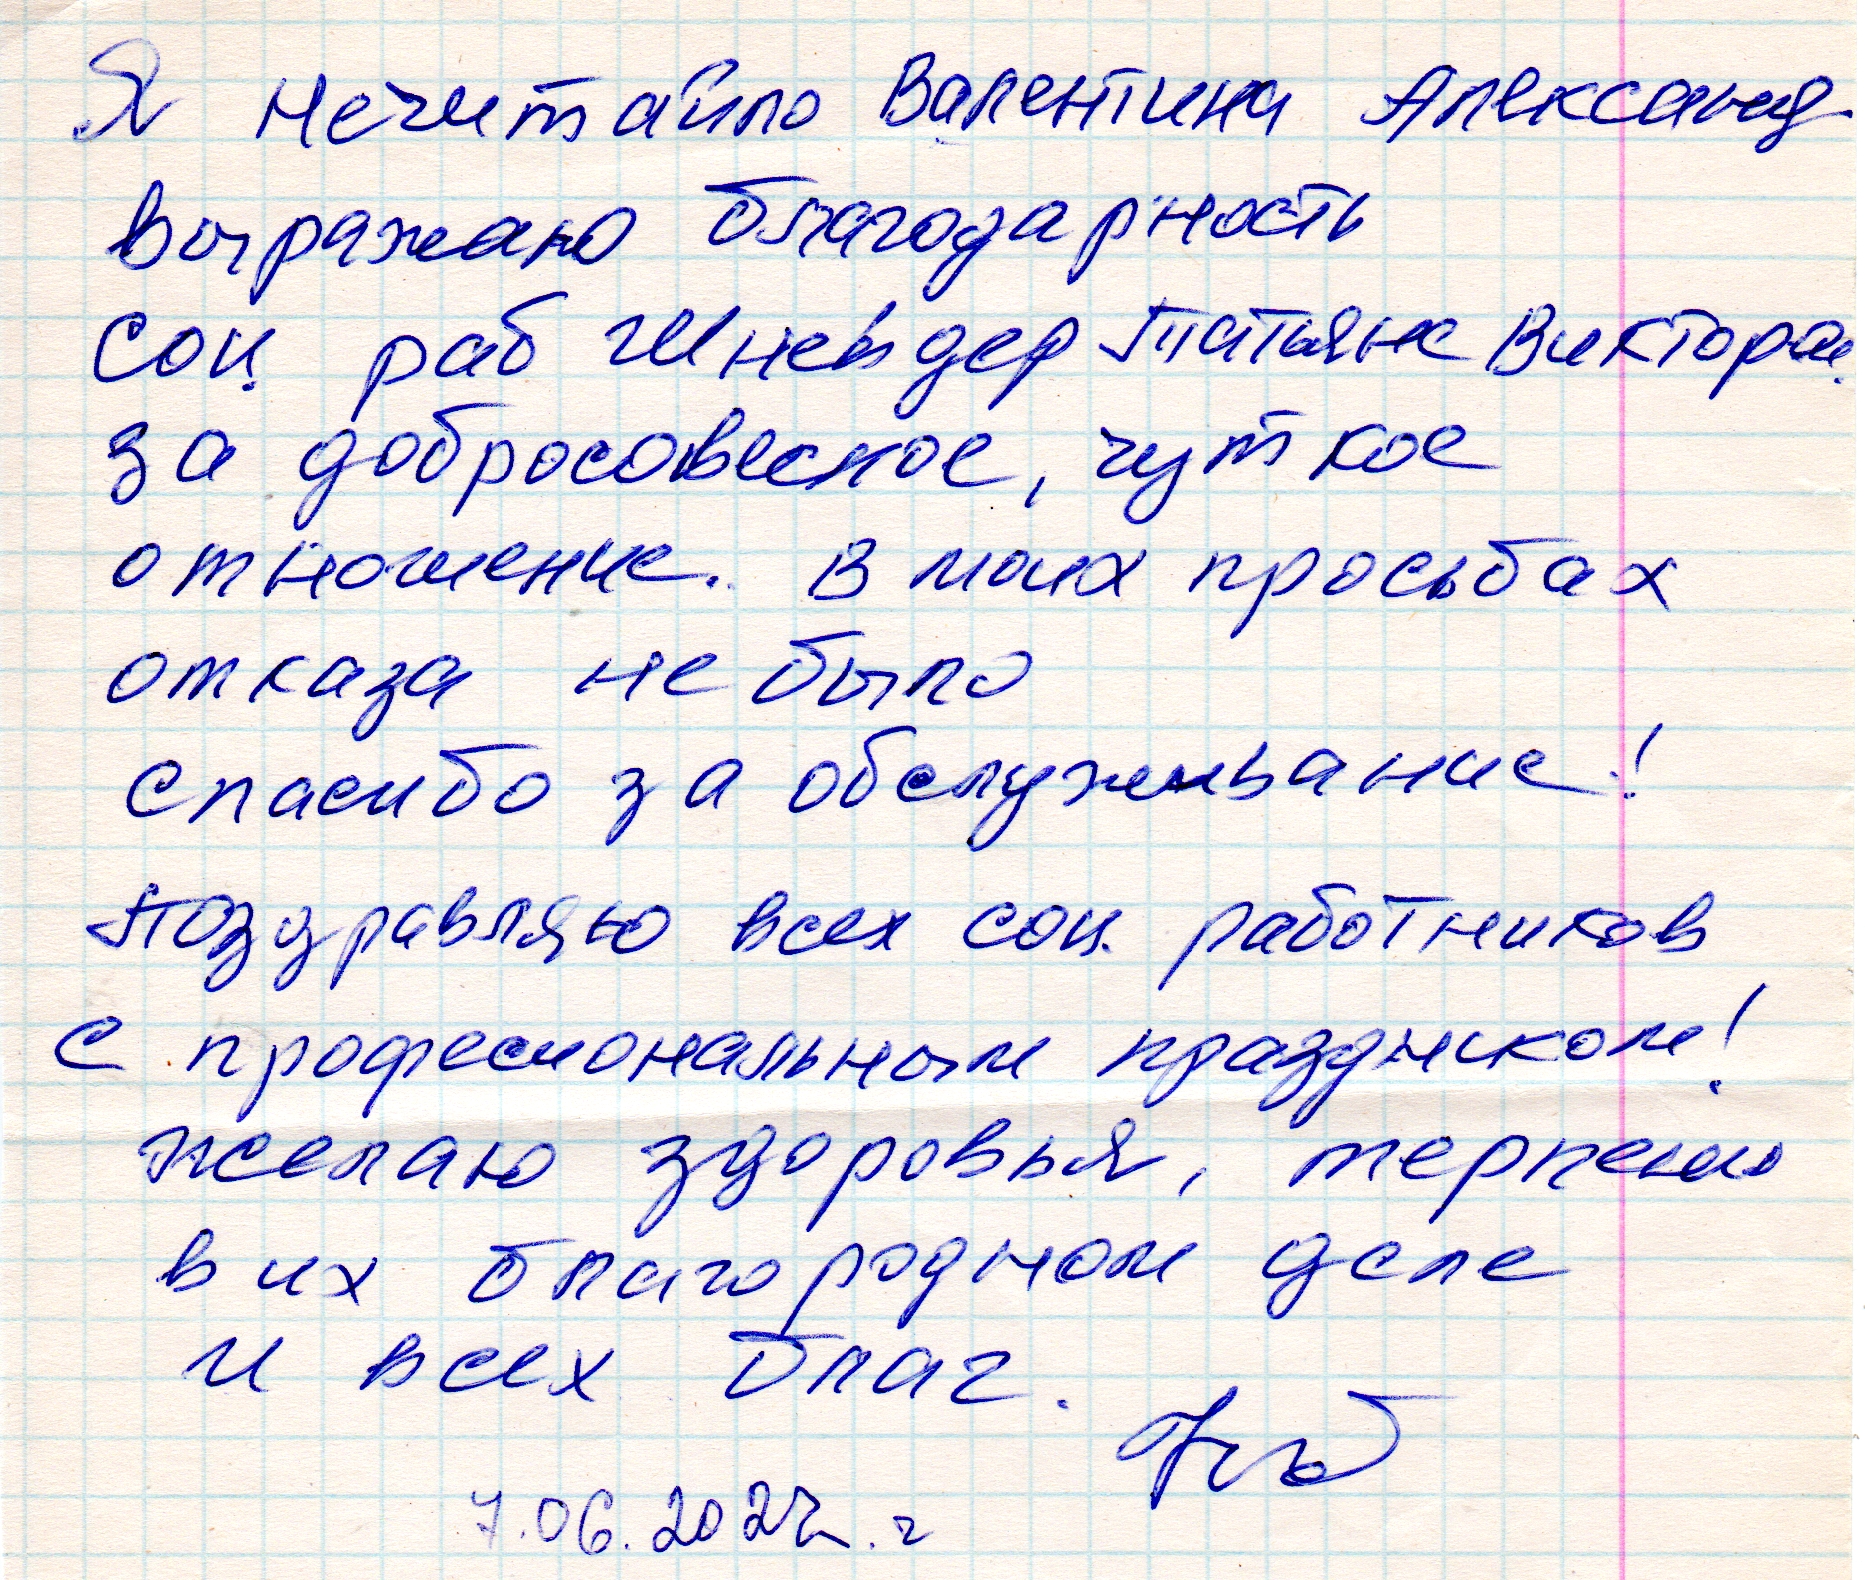 Я Нечитайло Валентина Александ
выражаю благодарность
соц раб Шневдер Татьяне Виктора.
за добросовесное, чуткое
отношение. В моих просьбах
отказа не было
спасибо за обслуживание!
Поздравляю всех соц. работников
с професиональным праздником!
желаю здоровья, терпению
в их благородном деле
и всех благ.
7.06.2022.г